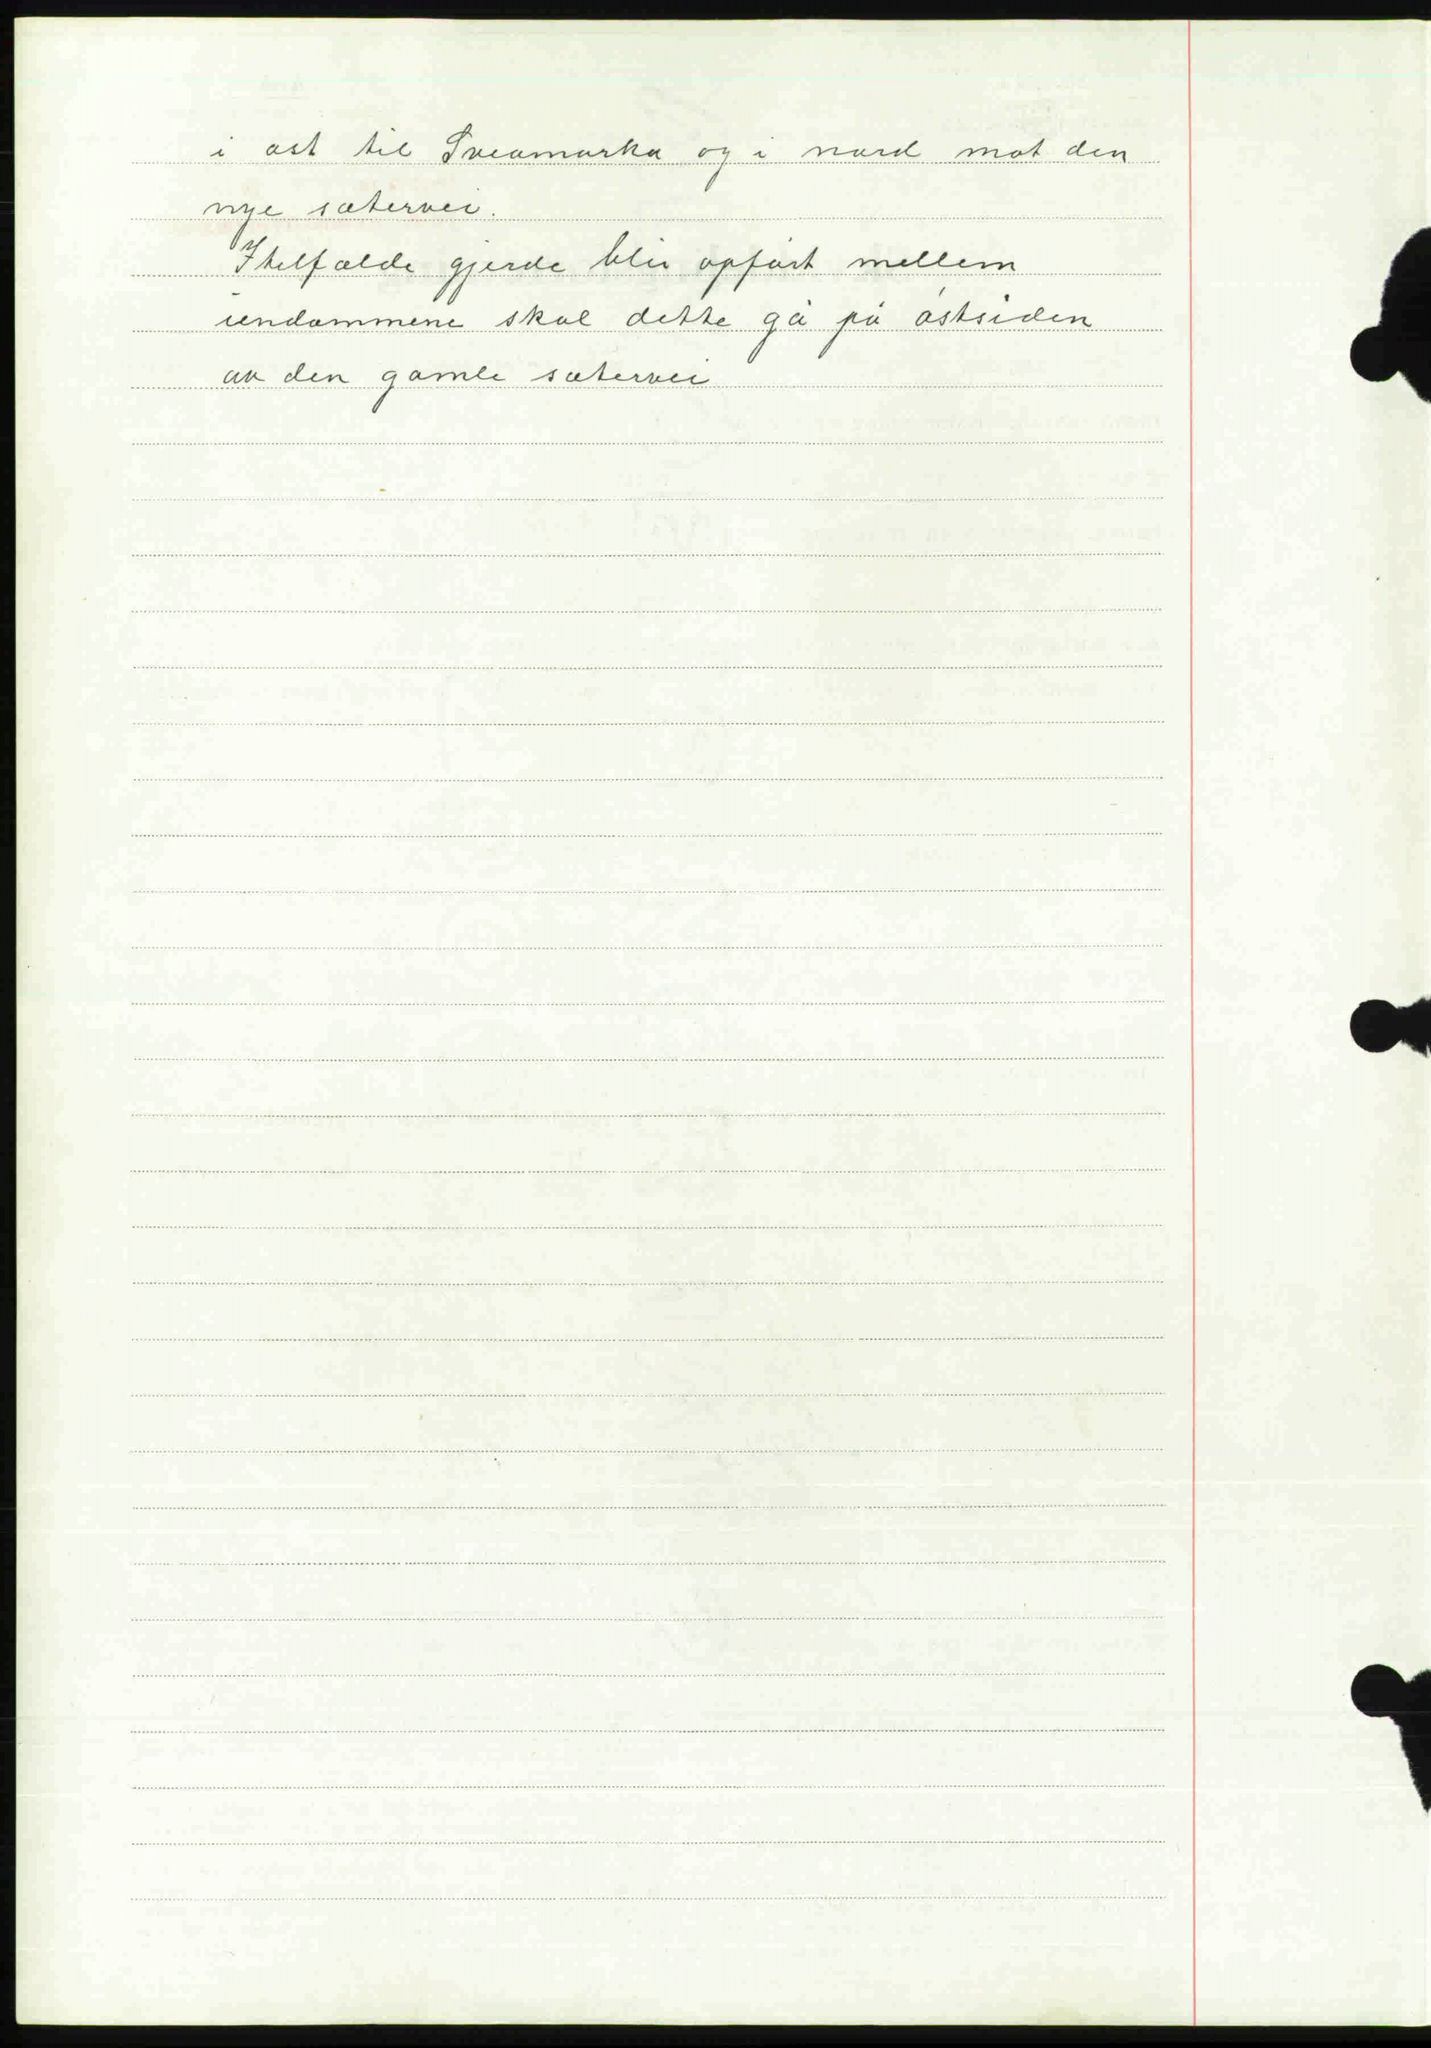 i øst til Sveamarka og i nord mot den
nye sætervei.
I telfælde gjerde blir opført mellem
iendommene skal dette gå på østsiden
av den gamle sætervei